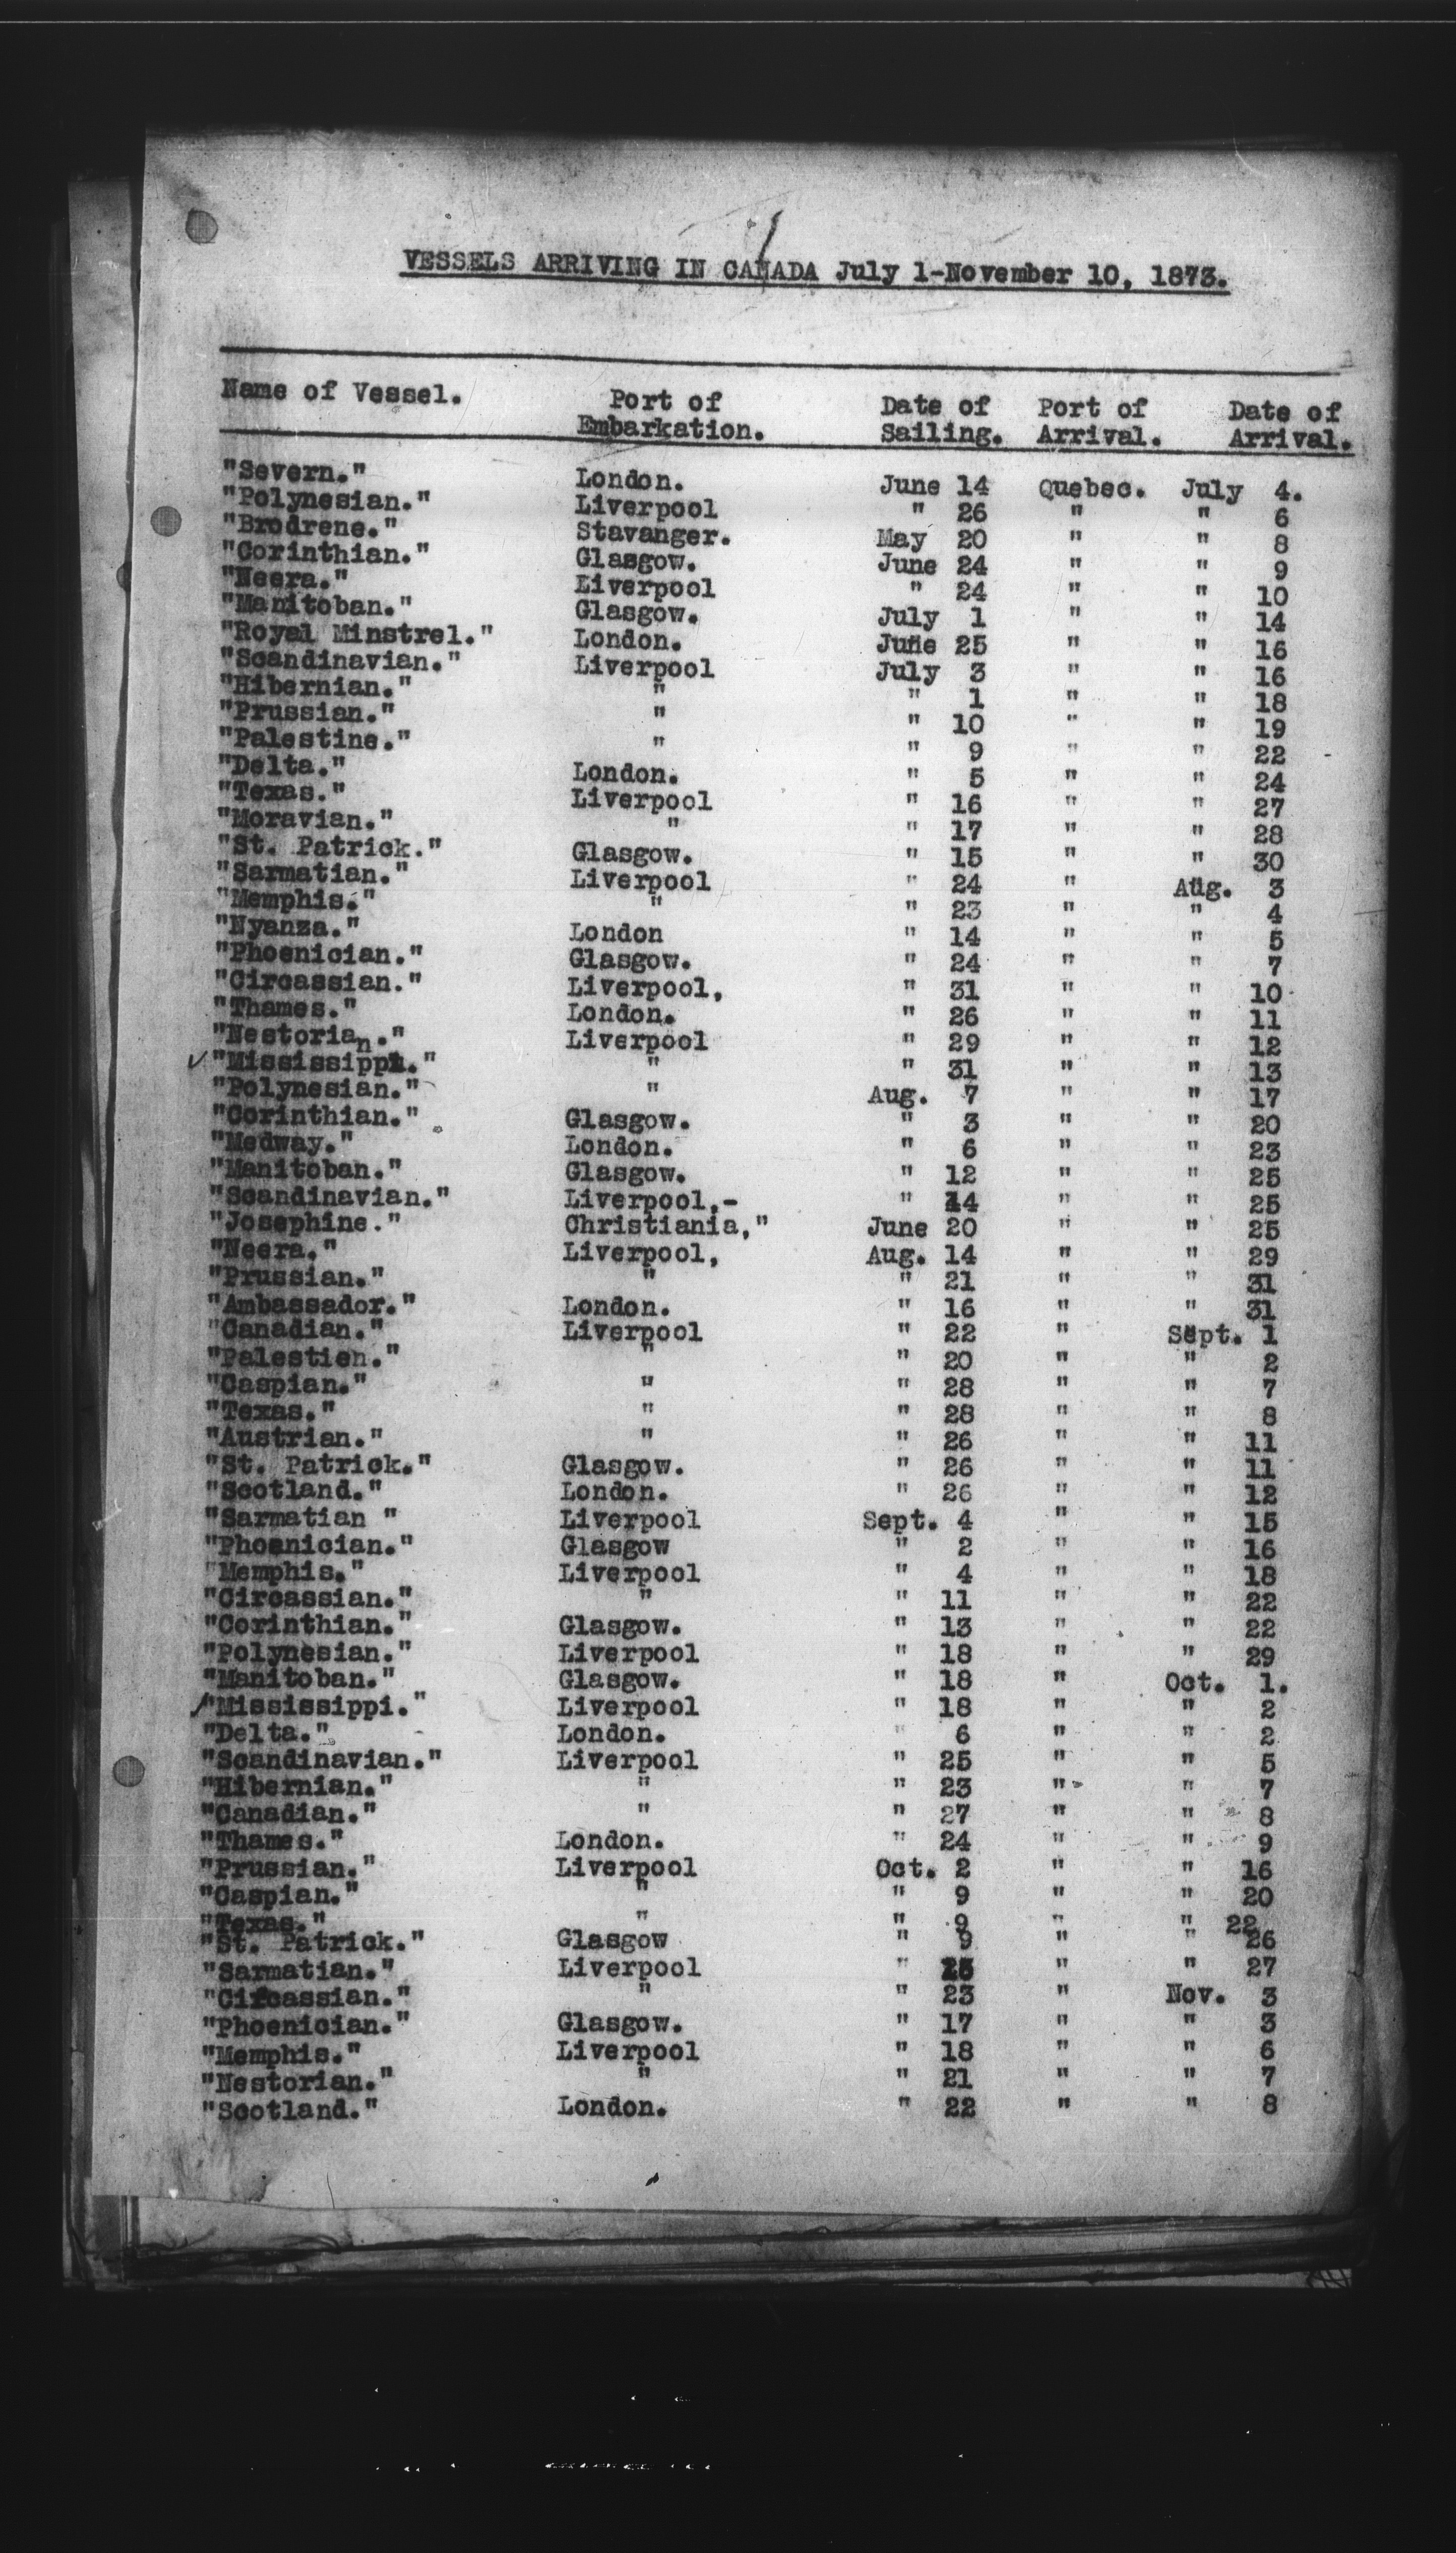 VESSELS ARRIVING IN CANADA July 1-November 10, 1873.
Name of Vessel. Port of Embarkation. Date of Sailing. Port of Arrival. Date of Arrival.
"Severn." London. June 14 Quebec. July 4.
"Polynesian." Liverpool " 26 " " 6
"Brodrene." Stavanger. May 20 " " 8
"Corinthian." Glasgow. June 24 " " 9
"Neera." Liverpool " 24 " " 10
"Manitoban." Glasgow. July 1 " " 14
"Royal Minstrel." London. June 25 " " 16
"Scandinavian." Liverpool July 3 " " 16
"Hibernian." " " 1 " " 18
"Prussian." " " 10 " " 19
"Palestine." " " 9 " " 22
"Delta." London. " 5 " " 24
"Texas." Liverpool " 16 " " 27
"Moravian." " " 17 " " 28
"St. Patrick." Glasgow. " 15 " " 30
"Sarmatian." Liverpool " 24 " Aug. 3
"Memphis." " " 23 " " 4
"Nyanza." London " 14 " " 5
"Phoenician." Glasgow. " 24 " " 7
"Circassian." Liverpool, " 31 " " 10
"Thames." London. " 26 " " 11
"Nestorian." Liverpool " 29 " " 12
"Mississippi." " " 31 " " 13
"Polynesian." " Aug. 7 " " 17
"Corinthian." Glasgow. " 3 " " 20
"Medway." London. " 6 " " 23
"Manitoban." Glasgow. " 12 " " 25
"Scandinavian." Liverpool,- " 14 " " 25
"Josephine." Christiania," June 20 " " 25
"Neera." Liverpool, Aug. 14 " " 29
"Prussian." " " 21 " " 31
"Ambassador." London. " 16 " " 31
"Canadian." Liverpool " 22 " Sept. 1
"Palestien." " " 20 " " 2
"Caspian." " " 28 " " 7
"Texas." " " 28 " " 8
"Austrian." " " 26 " " 11
"St. Patrick." Glasgow. " 26 " " 11
"Scotland." London. " 26 " " 12
"Sarmatian " Liverpool Sept. 4 " " 15
"Phoenician." Glasgow " 2 " " 16
"Memphis." Liverpool " 4 " " 18
"Circassian." " " 11 " " 22
"Corinthian." Glasgow. " 13 " " 22
"Polynesian." Liverpool " 18 " " 29
"Manitoban." Glasgow. " 18 " Oct. 1.
"Mississippi." Liverpool " 18 " " 2
"Delta." London. " 6 " " 2
"Scandinavian." Liverpool " 25 " " 5
"Hibernian." " " 23 " " 7
"Canadian." " " 27 " " 8
"Thames." London. " 24 " " 9
"Prussian." Liverpool Oct. 2 " " 16
"Caspian." " " 9 " " 20
"Texas." " " 9 " " 22
"St. Patrick." Glasgow " 9 " " 26
"Sarmatian." Liverpool " " " 27
"Circassian." " " 23 " Nov. 3
"Phoenician." Glasgow. " 17 " " 3
"Memphis." Liverpool " 18 " " 6
"Nestorian." " " 21 " " 7
"Scotland." London. " 22 " " 8